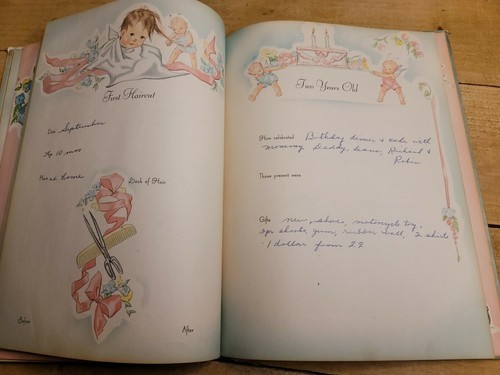 First Haircut
On September
Age 10 mos
Place home
Lock of Hair
Before
After
Two Years Old
How celebrated Birthday dinner & cake with
mommy Daddy, Richard &
Robin
Those present were
Gifts new shoes, motorcycle toy,
gun, rubber ball, 2 shirts
1 dollar from